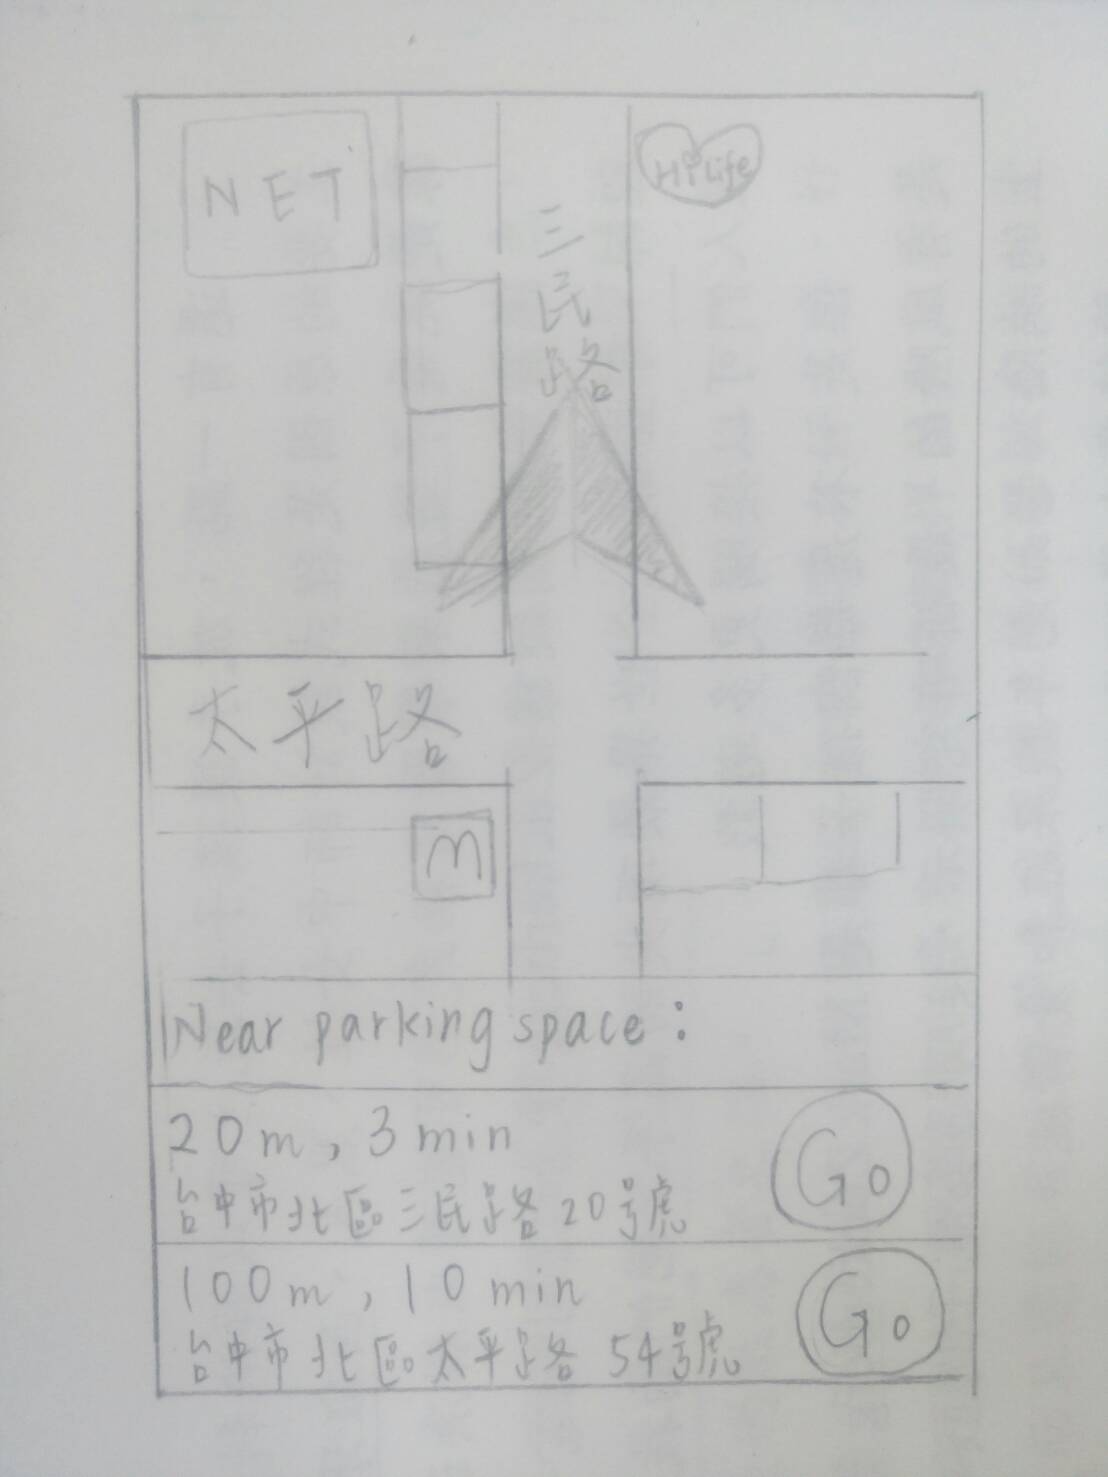 NET
Hi Life
三民路
太平路
m
Near parking space:
20m, 3min
台中市北區三民路20号虎
Go
100m, 10 min
台中市北區太平路 54号虎
Go